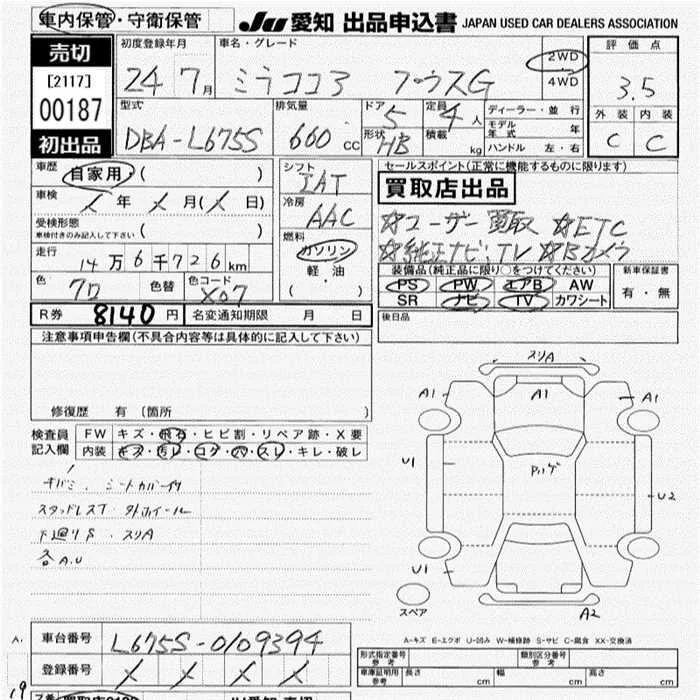 車内保管・守衛保管
JU 愛知 出品申込書 JAPAN USED CAR DEALERS ASSOCIATION
売切
[2117]
00187
初出品
初度登録年月
24 7月
車名・グレード
ミラココア プラスG
2WD
4WD
評価点
3.5
外装 内装
C C
型式
DBA-L675S
排気量
660 cc
ドア 5
形状 HB
定員 4人
積載 kg
ディーラー・並行
モデル年式 年
ハンドル 左・右
車歴
自家用・( )
車検
年 月( 日)
受検形態
車検付きのみ記入して下さい ( )
走行
14万6千726km
色 色替 色コード
X07
シフト
IAT
冷房
AAC
燃料
ガソリン
軽・油
( )
セールスポイント(正常に機能するものに限ります)
買取店出品
☆ユーザー買取 ☆ETC
☆純正ナビ・TV ☆Bカメラ
装備品(純正品に限り○をつけてください)
PS PW エアB AW
SR ナビ TV カワシート
新車保証書
有・無
R券 8140円 名変通知期限 月 日
後日品
注意事項申告欄(不具合内容等は具体的に記入して下さい)
修復歴 有(箇所 )
検査員記入欄
FW キズ・飛石・ヒビ割・リペア跡・X要
内装 キズ・汚レ・コゲ・穴・スレ・キレ・破レ
スタッドレスT・外ホイール
下廻りS・スリA
各A.U
スリA
A1 A1 A1
U1
U2
U1
A2
スペア
A-キズ E-エクボ U-凹み W-補修跡 S-サビ C-腐食 XX-交換済
車台番号 L675S-0109394
登録番号
形式指定番号 参考
類別区分番号 参考
車庫証明用 参考 長さ cm 幅 cm 高さ cm
A.
19